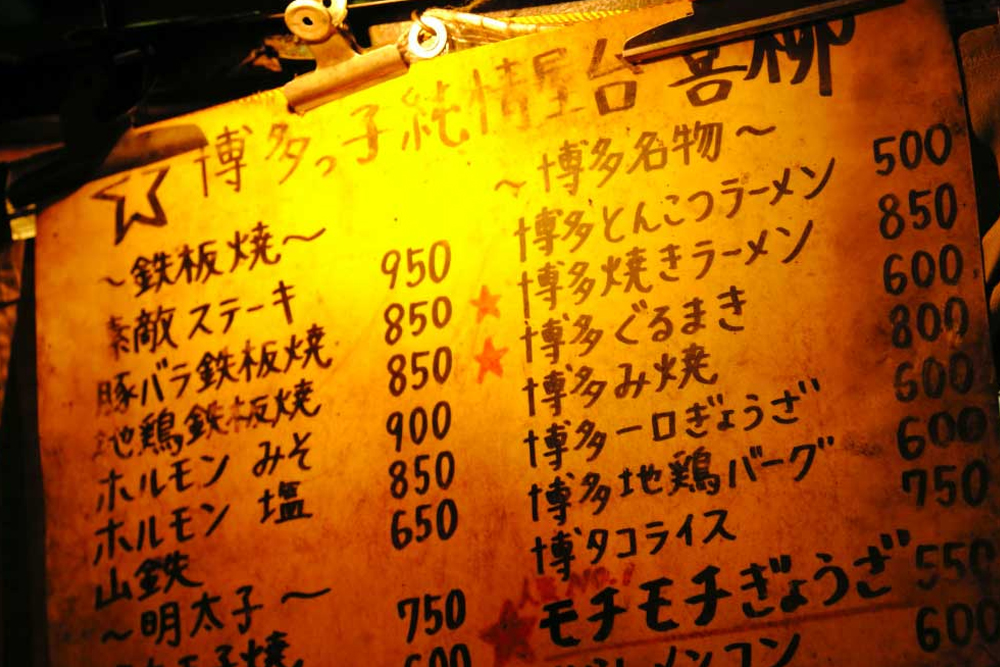 ☆博多っ子純情屋台 喜柳
～鉄板焼～
素敵ステーキ 950
豚バラ鉄板焼 850
地鶏鉄板焼 850
ホルモン みそ 900
ホルモン 塩 850
山鉄 650
～明太子～
子焼 750
600
～博多名物～
博多とんこつラーメン 500
★博多焼きラーメン 850
★博多ぐるまき 600
博多み焼 800
博多一口ぎょうざ 600
博多地鶏バーグ 600
博タコライス 750
★モチモチぎょうざ 550
600